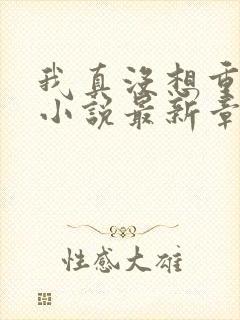 我真没想重
小说最新章
性感大雄